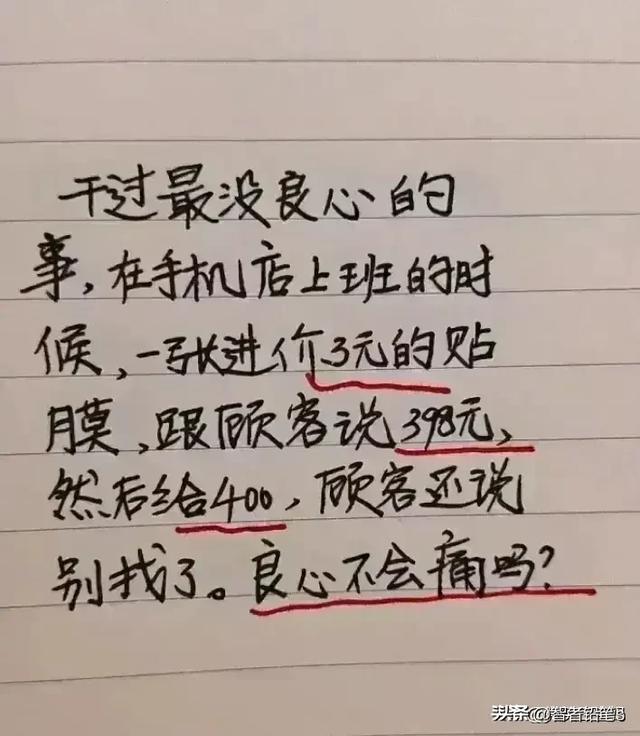 干过最没良心的
事,在手机店上班的时
候,一张进价3元的贴
膜,跟顾客说398元,
然后给400,顾客还说
别找了。良心不会痛吗?
头条@智者铅笔B